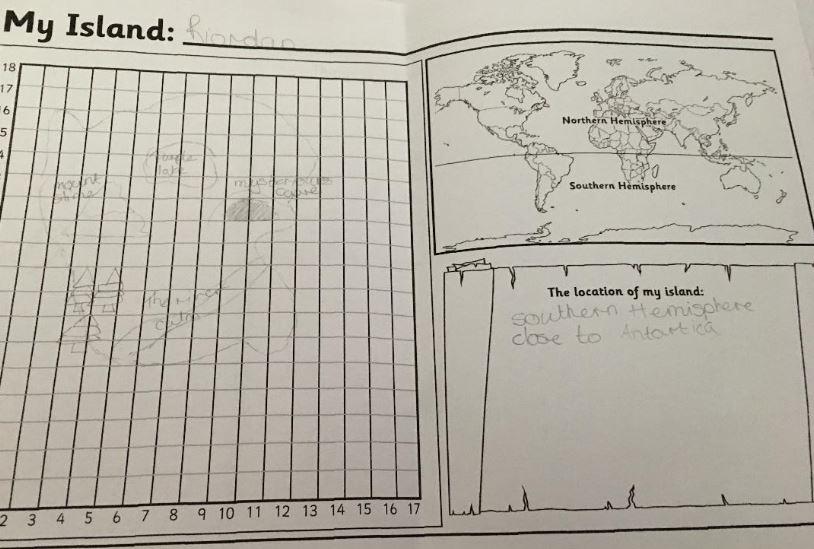 My Island: Riordan
18
17
16
5
4
Northern Hemisphere
Southern Hemisphere
lake
mount
mysterious
The River
calm
The location of my island:
Southern Hemisphere
close to Antartica
2 3 4 5 6 7 8 9 10 11 12 13 14 15 16 17